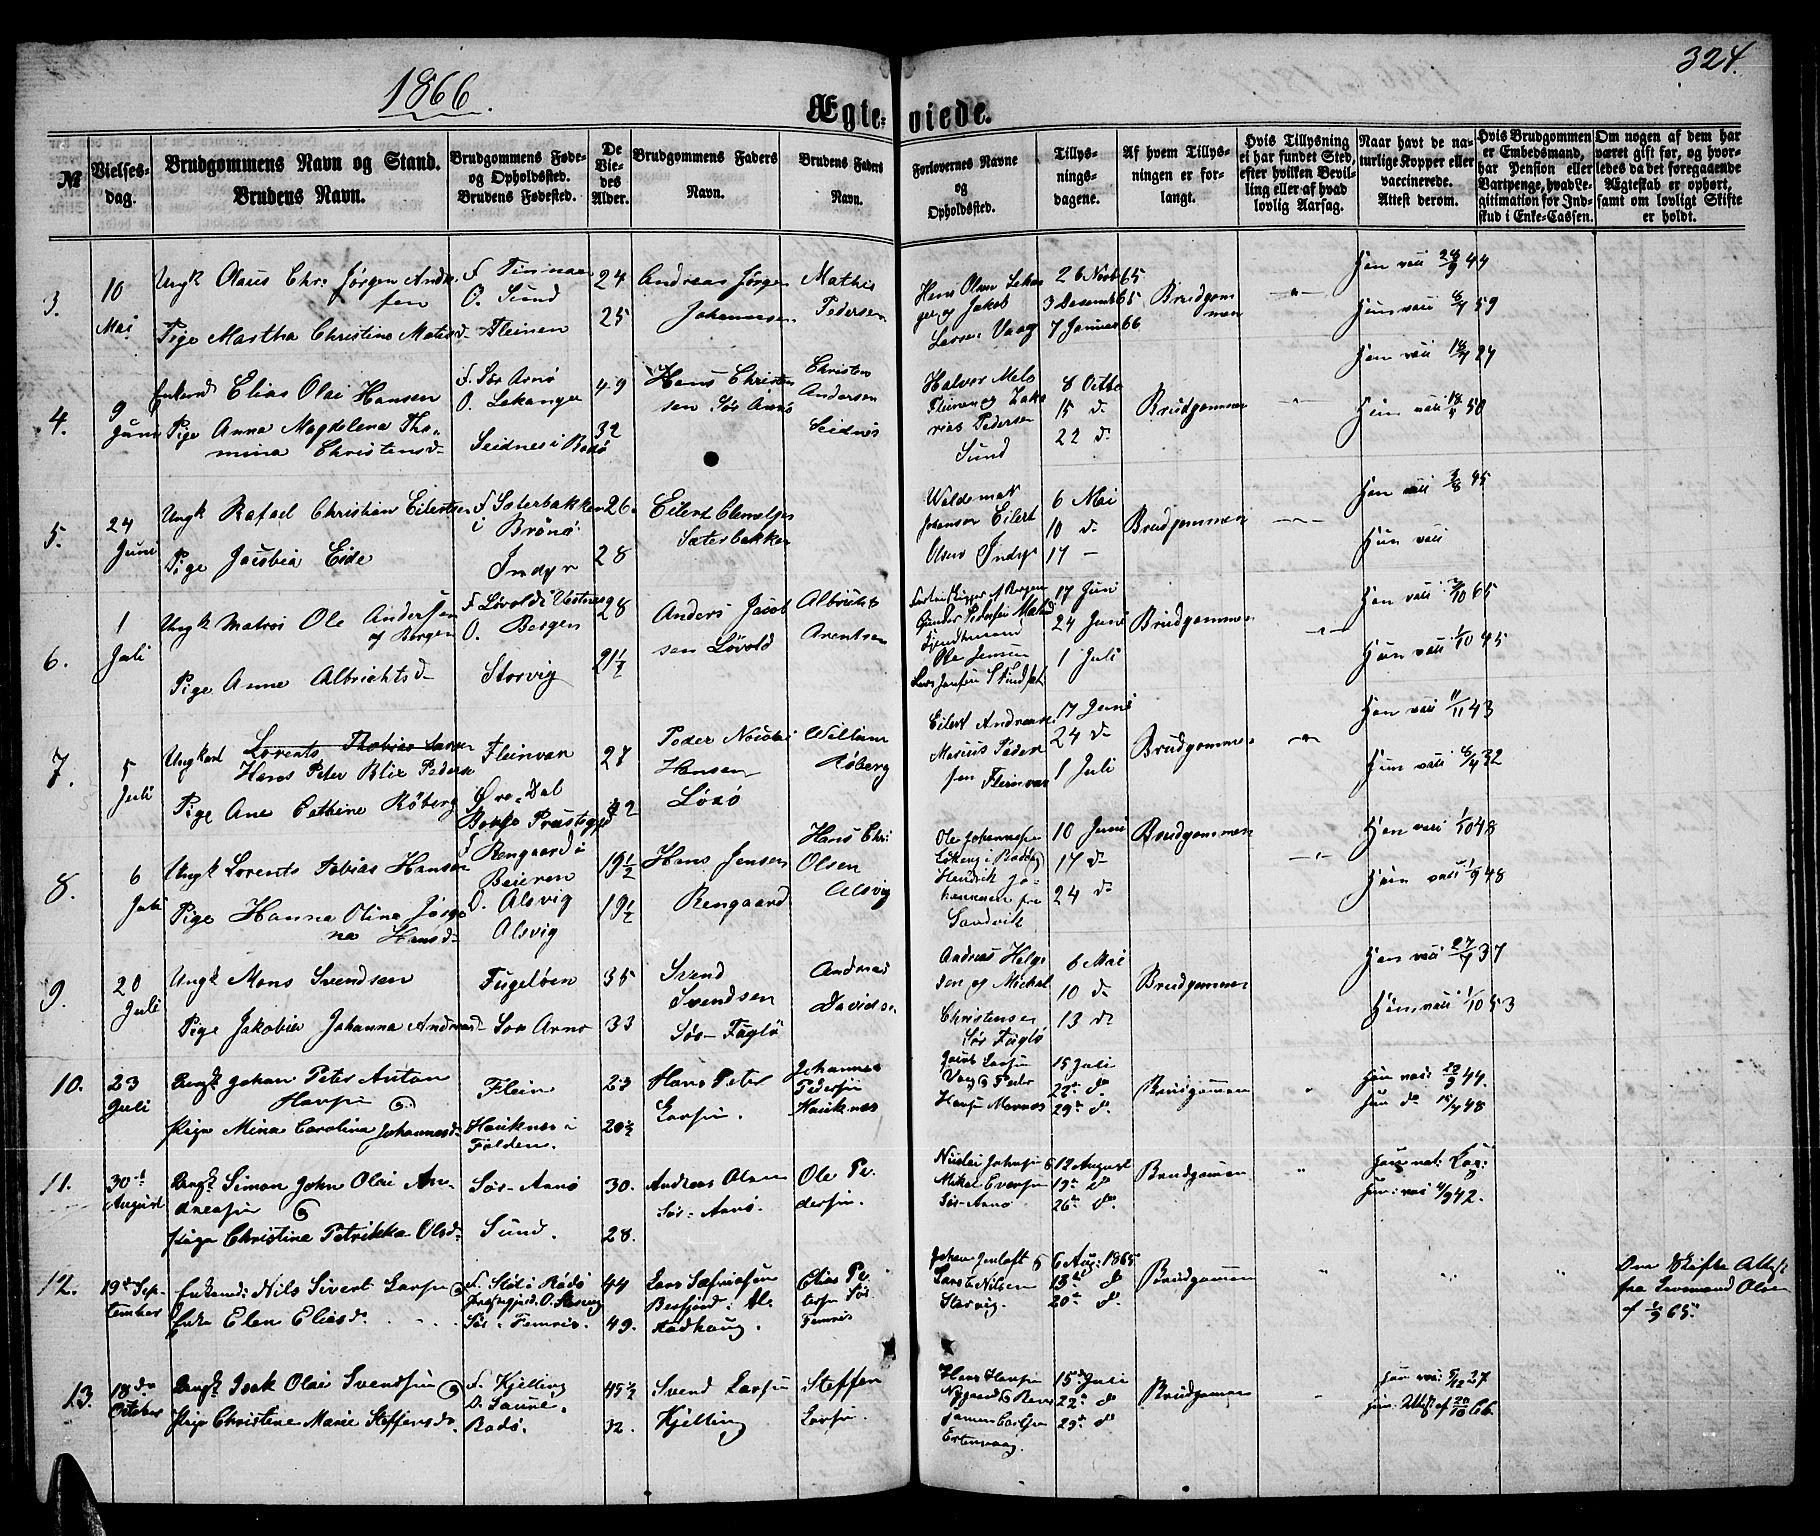 1866.
324.
Ægte-viede.
№
Vielses-
dag.
Brudgommens Navn og Stand.
Brudens Navn.
Brudgommens Føde-
og Opholdssted.
Brudens Fødested.
De
Vie-
des
Alder.
Brudgommens Faders
Navn.
Brudens Faders
Navn.
Forlovernes Navne
og
Opholdssted.
Tillys-
nings-
dagene.
Af hvem Tillys-
ningen er for-
langt.
Hvis Tillysning
ei har fundet Sted,
efter hvilken Bevil-
ling eller af hvad
lovlig Aarsag.
Naar havt de na-
turlige Kopper eller
vaccinerede.
Attest derom.
Hvis Brudgommen
er Embedsmand,
har Pension eller
Vartpenge, hvad Le-
gitimation for Ind-
skud i Enke-Cassen.
Om nogen af dem har
været gift før, og hvor-
ledes da det foregaaende
Ægteskab er ophørt,
samt om lovligt Skifte
er holdt.
3.
10
Mai
Ungk Olaus Chr. Jørgen Andr.
sen
Pige Martha Christine Matisd
O. Sund
Fleinen
24
25
Andreas Jørgen
Johannesen
Mathis
Pedersen
Hans Olsen
og Jakob
Larsen Vaag
26 Novb 65
3 Desemb 65
7 Januar 66
Brudgom
men
Han vac 28/9 44
Hun vac 8/7 59
4.
9
Juni
Enkemd Elias Olai Hansen
Pige Anna Magdelena Tho-
mina Christensd
F. Sør Arnø
O. Lekanger
Seidnes i Bodø
49
32
Hans Christen
sen Sør Arnø
Christen
Andersen
Seidnes
Halvor
Fleinen og Zaka
rias Pedersen
Sund
8 Octbr
15 d.
22 d.
Brudgommen
Han vac 18/7 24
Hun vac 18/7 50
5.
24
Juni
Ungk Rafael Christian Eilertsen
Pige Jacobia Eide
F. Sæterbakken
i Brønø
Indyr
26.
28
Eilert
Sæterbakken
Waldemar
Johansen Eilert
Olsen Indyr
6 Mai
10 d.
17 –
Brudgommen
Han vac 3/8 45
Hun vac
6.
1
Juli
Ungk Matros Ole Andersen
af Bergen
Pige Anne Albrichtsd
F. Løvold i Vestnes
O. Bergen
Storvig
28
21½
Anders Jacob
sen Løvold
Albrickt
Arentsen
Ole Jensen
17 Juni
24 Juni
1 Juli
Brudgommen
Han vac 3/10 65
Hun vac 1/10 45
7.
5
Juli
Ungkarl Lorents Thobias Larsen
Hans Peter Blix Peders
Pige Ane Cathine Røberg
Fleinvær
Øre-Dal
27
32
Peder Nicolai
Hansen
Løsø
William
Røberg
Eilert Andreas
Marius Peder
sen Fleinvær
17 Juni
24 d.
1 Juli
Brudgommen
Han vac 11/11 43
Hun vac 8/7 32
8.
6
Juli
Ungk Lorents Tobias Hansen
Pige Hanna Olina Jørgi
na Hansd
F. Rengaard i
Beieren
O. Alsvig
Alsvig
19½
19½
Hans Jensen
Rengaard
Hans Chr.
Olsen
Alsvig
Ole Johannesen
Hendrik Jo-
hannesen
Sandvik
10 Juni
17 d.
24 d.
Brudgommen
Han vac 1/10 48
Hun vac 1/9 48
9.
20
Juli
Ungk Mons Svendsen
Pige Jakobia Johanna Andreasd
Fugeløen
Sør Arnø
35
33
Svend
Svendsen
Sør-Fuglø
Andreas
Davids.
Andreas Helge
sen og Michal
Christensen
Sør Fuglø
6 Mai
10 d.
13 d.
Brudgommen
Han vac 27/7 37
Hun vac 1/10 53
10.
23
Juli
Ungk Johan Peter Anton
Hansen
Pige Mina Carolina Johannesd.
Flein
Hauknes i
Folden.
23
20½
Hans Peter
Larsen.
Johannes
Pedersen
Hauknes
Jacob Larsen
Vaag & Peder
Hansen
15 Juli
22de d.
29de d.
Brudgommen
Han vac: 20/9 44.
Hun do 15/7 48
11.
30te
August
Ungk Simon John Olai An-
dreasen
Pige Christine Petrikka Olsd.
Sør-Arnø
Sund.
30.
28.
Andreas Olsen
Sør-Arnø.
Ole Pe-
dersen.
Nicolai Johnsen &
Mikal Evensen
Sør-Arnø
12 August
19de d.
26de d.
Brudgommen
Hun: vac 4/9 42.
12.
19de Sep-
tember
Enkemd: Nils Sivert Larsen
Enke Elen Eliasd.
Sør-Femris.
44
49.
Elias Pe-
tersen Sør
Femris
Lars Nilsen
Storvig.
6 Aug: 1865
13de d.
20de d.
Brudgommen
Den Skifte Attest
fra Lensmand Olsen
13.
18de
October
Ungk Isak Olai Svendsen
Pige Christine Marie Steffensd.
F. Kjelling
Bodø.
45½
32.
Svend Larsen
Kjelling
Steffen
Larsen.
Hans Hansen
15de Juli
22de d.
29de d.
Brudgommen
Hun: Attest af 20/10 66.